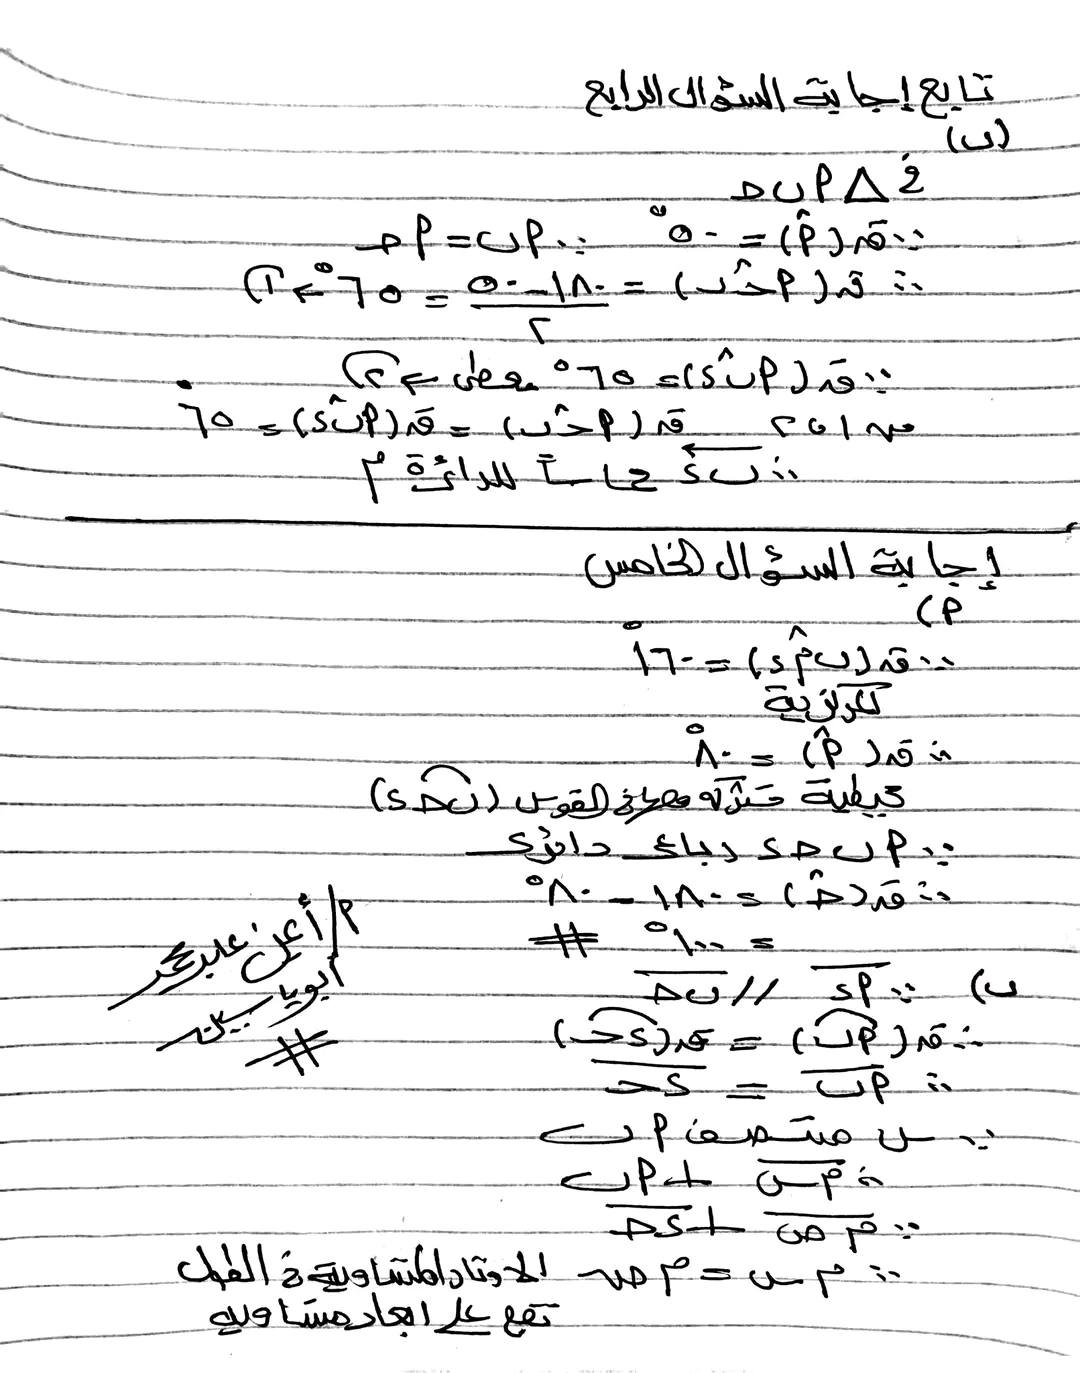 تابع إجابة السؤال الرابع
(ب)
في △ أ ب حـ
∵ ق(أ̂) = ٥٠° ∵ أب = أحـ
∴ ق(أحـ̂ب) = (١٨٠ - ٥٠)/٢ = ٦٥° ← ①
∵ ق(أب̂د) = ٦٥° معطى ← ②
من ١، ٢ ق(أحـ̂ب) = ق(أب̂د) = ٦٥°
∴ ب د مماساً للدائرة م
إجابة السؤال الخامس
أ)
∵ ق(ب م̂ د) = ١٦٠°
المركزية
∴ ق(أ̂) = ٨٠°
محيطية مشتركه معها فى القوس (ب حـ د)
∵ أ ب حـ د رباعى دائرى
∴ ق(حـ̂) = ١٨٠ - ٨٠°
= ١٠٠° #
ب) ∵ أد // ب حـ
∴ ق(أب) = ق(دحـ)
∴ أب = دحـ
∵ س منتصف أ ب
∴ م س ⊥ أ ب
∵ م ص ⊥ دحـ
∴ م س = م ص الاوتار المتساوية فى الطول
تقع على ابعاد متساويه
م/ أيمن عبد
أبو ياسين
#